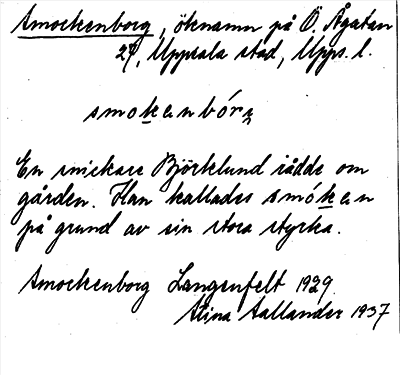 Smockenborg, öknamn på Ö. Ågatan
27, Uppsala stad, Upps. l.
smokenbórꞑ
En snickare Björklund rådde om
gården. Han kallades smóken
på grund av sin stora styrka.
Smockenborg Langenfelt 1929.
Stina Sallander 1937